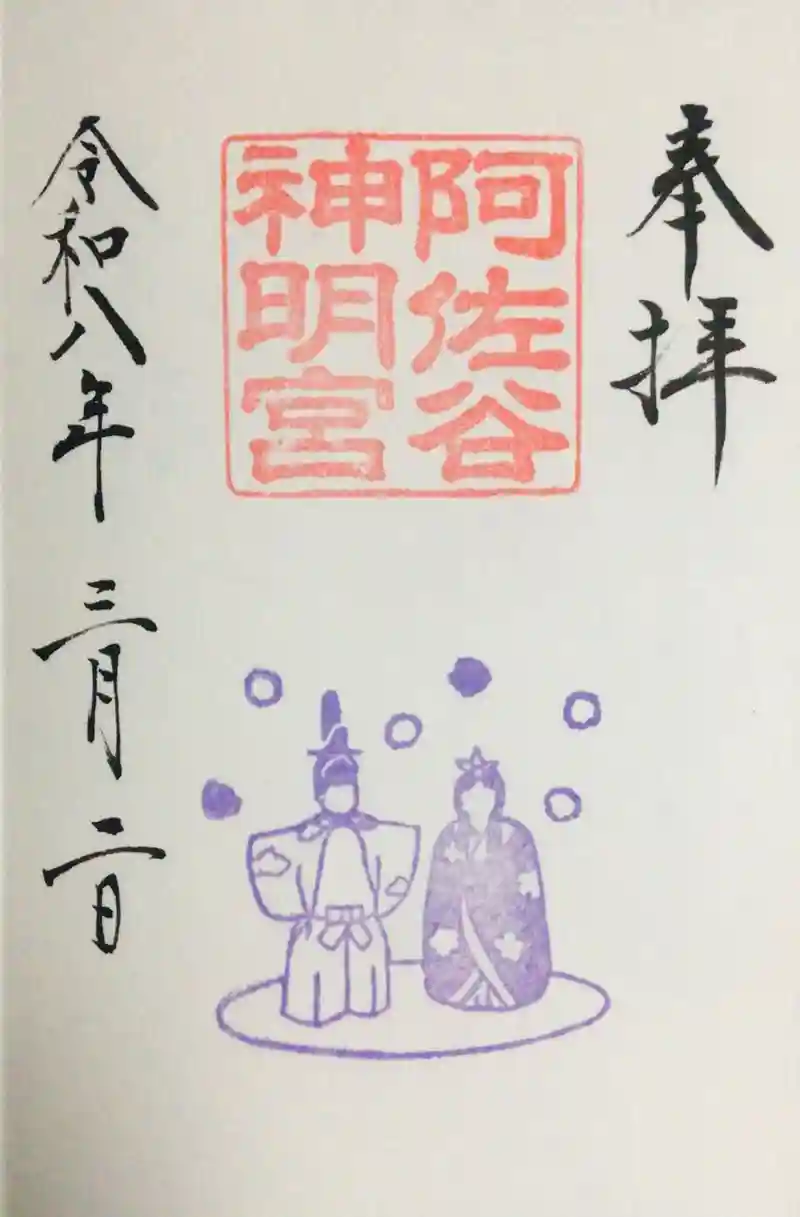 奉拝
阿佐谷
神明宮
令和八年三月二日